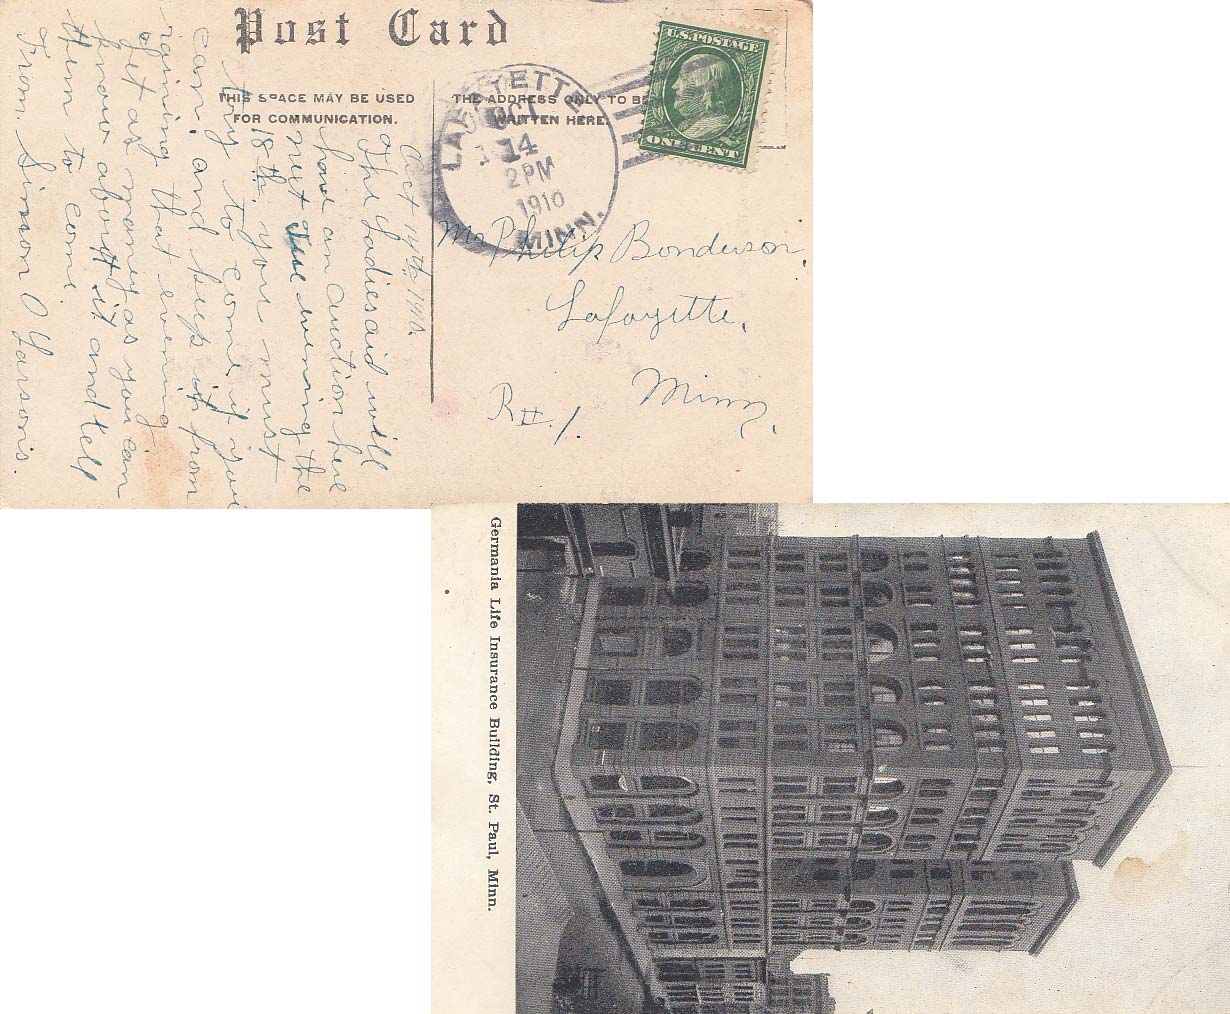 Post Card
THIS SPACE MAY BE USED
FOR COMMUNICATION.
THE ADDRESS ONLY TO BE
WRITTEN HERE.
U.S. POSTAGE
ONE CENT
LAFAYETTE
OCT
14
2 PM
1910
MINN.
Mr Philip Bonderson,
Lafayette,
Minn.
R#. 1.
Oct 14th, 1910.
The Ladies aid will
have an auction here
next Tue evening the
18th. you must
try to come if you
can, and keep it from
raining that evening
Get as many as you can
know about it and tell
them to come.
From Simon O Larsons.
Germania Life Insurance Building, St. Paul, Minn.